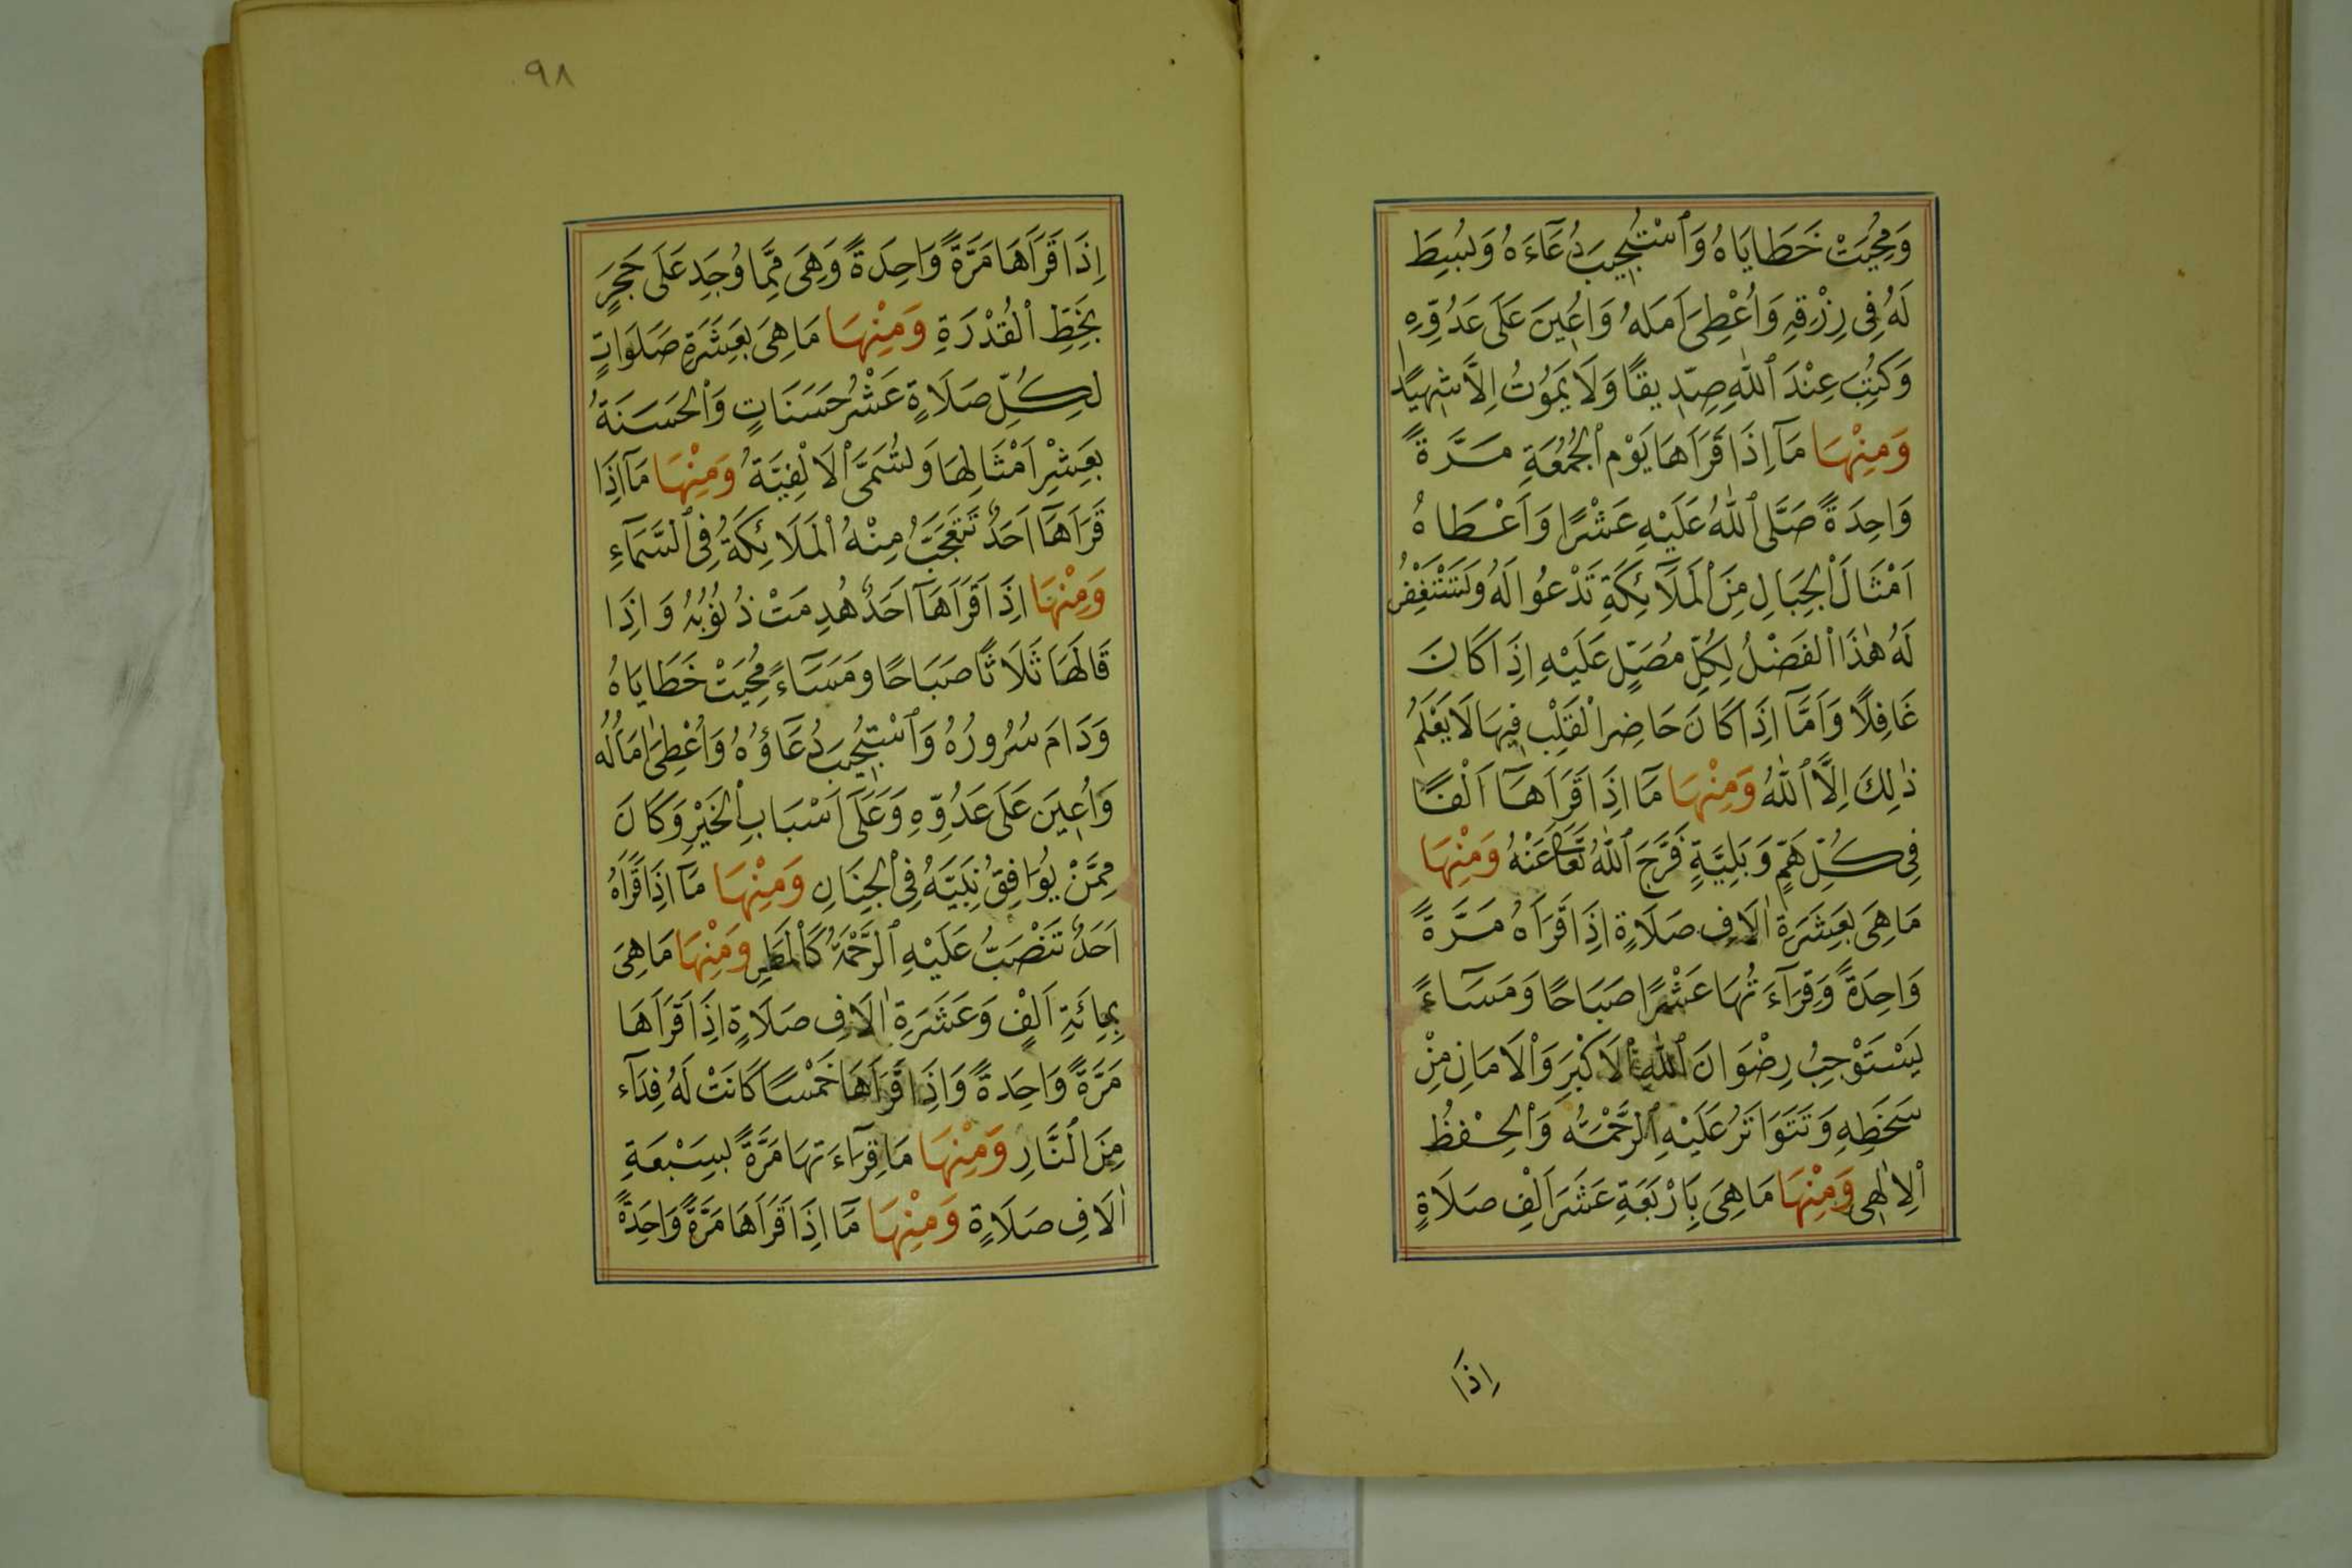 وَمُحِيَتْ خَطَايَاهُ وَٱسْتُجِيبَ دُعَآءَهُ وَبُسِطَ
لَهُ فِى رِزْقِهِ وَاُعْطِىَ اَمَلَهُ وَاُعِينَ عَلَى عَدُوِّهِ
وَكُتِبَ عِنْدَ ٱللّٰهِ صِدِّيقًا وَلَا يَمُوْتُ اِلَّا شَهِيدًا
وَمِنْهَا مَآ اِذَا قَرَاَهَا يَوْمَ ٱلْجُمُعَةِ مَرَّةً
وَاحِدَةً صَلَّى ٱللّٰهُ عَلَيْهِ عَشْرًا وَاَعْطَاهُ
اَمْثَالَ ٱلْجِبَالِ مِنَ ٱلْمَلَآئِكَةِ تَدْعُوا لَهُ وَتَسْتَغْفِرُ
لَهُ هٰذَا ٱلْفَضْلُ لِكُلِّ مُصَلٍّ عَلَيْهِ اِذَا كَانَ
غَافِلًا وَاَمَّا اِذَا كَانَ حَاضِرَ ٱلْقَلْبِ فِيهَا لَا يَعْلَمُ
ذٰلِكَ اِلَّا ٱللّٰهُ وَمِنْهَا مَآ اِذَا قَرَاَهَآ اَلْفًا
فِى كُلِّ هَمٍّ وَبَلِيَّةٍ فَرَّجَ ٱللّٰهُ تَعَا عَنْهُ وَمِنْهَا
مَا هِىَ بِعَشَرَةِ اٰلَافِ صَلَاةٍ اِذَا قَرَاَهُ مَرَّةً
وَاحِدَةً وَقِرَآءَتُهَا عَشْرًا صَبَاحًا وَمَسَآءً
يَسْتَوْجِبُ رِضْوَانَ ٱللّٰهِ ٱلْاَكْبَرِ وَٱلْاَمَانِ مِنْ
سَخَطِهِ وَتَتَوَاتَرُ عَلَيْهِ ٱلرَّحْمَةُ وَٱلْحِفْظُ
ٱلْاِلٰهِى وَمِنْهَا مَا هِىَ بِاَرْبَعَةِ عَشَرَ اَلْفِ صَلَاةٍ
اِذَا
٩٨
اِذَا قَرَاَهَا مَرَّةً وَاحِدَةً وَهِىَ مِمَّا وُجِدَ عَلَى حَجَرٍ
بِخَطِّ ٱلْقُدْرَةِ وَمِنْهَا مَا هِىَ بِعَشَرَةِ صَلَوَاتٍ
لِكُلِّ صَلَاةٍ عَشْرُ حَسَنَاتٍ وَٱلْحَسَنَةُ
بِعَشْرِ اَمْثَالِهَا وَتُسَمَّى ٱلْاَلْفِيَّةُ وَمِنْهَا مَآ اِذَا
قَرَاَهَآ اَحَدٌ تَتَعَجَّبُ مِنْهُ ٱلْمَلَائِكَةُ فِى ٱلسَّمَآءِ
وَمِنْهَا اِذَا قَرَاَهَآ اَحَدٌ هُدِمَتْ ذُنُوْبُهُ وَاِذَا
قَالَهَا ثَلَاثًا صَبَاحًا وَمَسَآءً مُحِيَتْ خَطَايَاهُ
وَدَامَ سُرُورُهُ وَٱسْتُجِيبَ دُعَآؤُهُ وَاُعْطِىَ اٰمَالُهُ
وَاُعِينَ عَلَى عَدُوِّهِ وَعَلَى اَسْبَابِ ٱلْخَيْرِ وَكَانَ
مِمَّنْ يُوَافِقُ نَبِيَّهُ فِى ٱلْجِنَانِ وَمِنْهَا مَآ اِذَا قَرَاَهُ
اَحَدٌ تَنْصَبُّ عَلَيْهِ ٱلرَّحْمَةُ كَٱلْمَطَرِ وَمِنْهَا مَا هِىَ
بِمِائَةِ اَلْفٍ وَعَشَرَةِ اٰلَافِ صَلَاةٍ اِذَا قَرَاَهَا
مَرَّةً وَاحِدَةً وَاِذَا قَرَاَهَا خَمْسًا كَانَتْ لَهُ فِدَآء
مِنَ ٱلنَّارِ وَمِنْهَا مَا قِرَآءَتهَا مَرَّةً بِسَبْعَةِ
اٰلَافِ صَلَاةٍ وَمِنْهَا مَآ اِذَا قَرَاَهَا مَرَّةً وَاحِدَةً